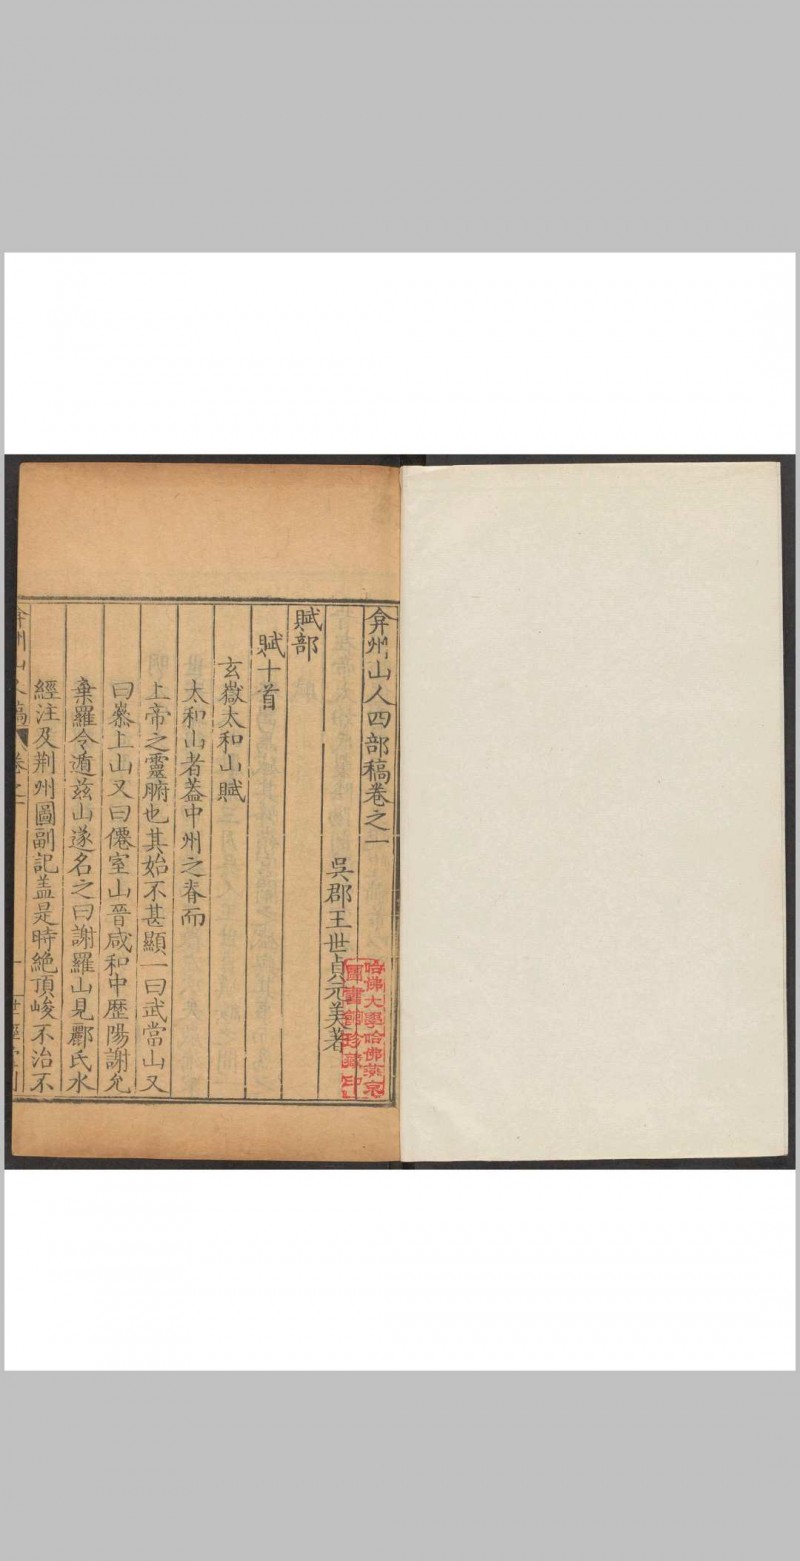 弇州山人四部稿卷之一
吳郡王世貞元美著
賦部
賦十首
玄嶽太和山賦
太和山者葢中州之脊而
上帝之靈腑也其始不甚顯一曰武當山又
曰嵾上山又曰僊室山晉咸和中歷陽謝允
棄羅令遁茲山遂名之曰謝羅山見酈氏水
經注及荆州圖副記葢是時絶頂峻不治不
弇州山人稿 卷之一 一 世經堂刻
哈佛大學哈佛燕京
圖書館珍藏印